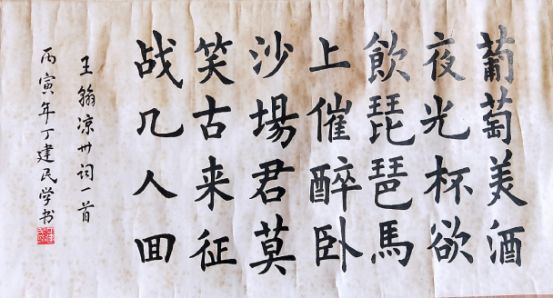 葡萄美酒
夜光杯欲
飲琵琶馬
上催醉卧
沙場君莫
笑古来征
战几人回
王翰凉州词一首
丙寅年丁建民学书